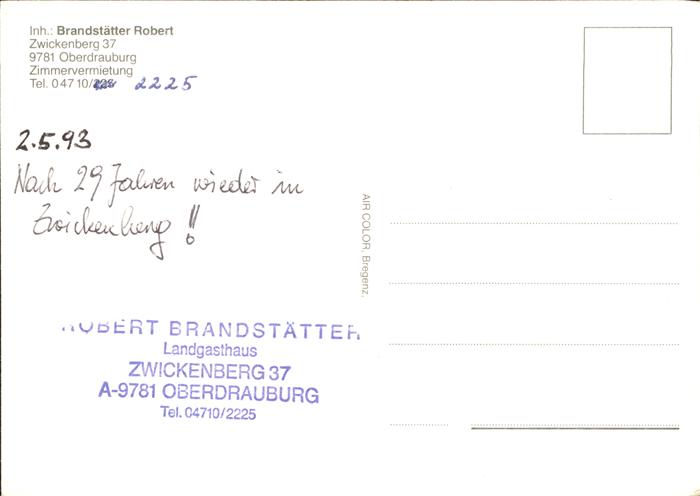 Inh.: Brandstätter Robert
Zwickenberg 37
9781 Oberdrauburg
Zimmervermietung
Tel. 0 47 10/228 2225
2.5.93
Nach 29 Jahren wieder in
Zwickenberg !!
AIR COLOR, Bregenz.
ROBERT BRANDSTÄTTER
Landgasthaus
ZWICKENBERG 37
A-9781 OBERDRAUBURG
Tel. 04710/2225